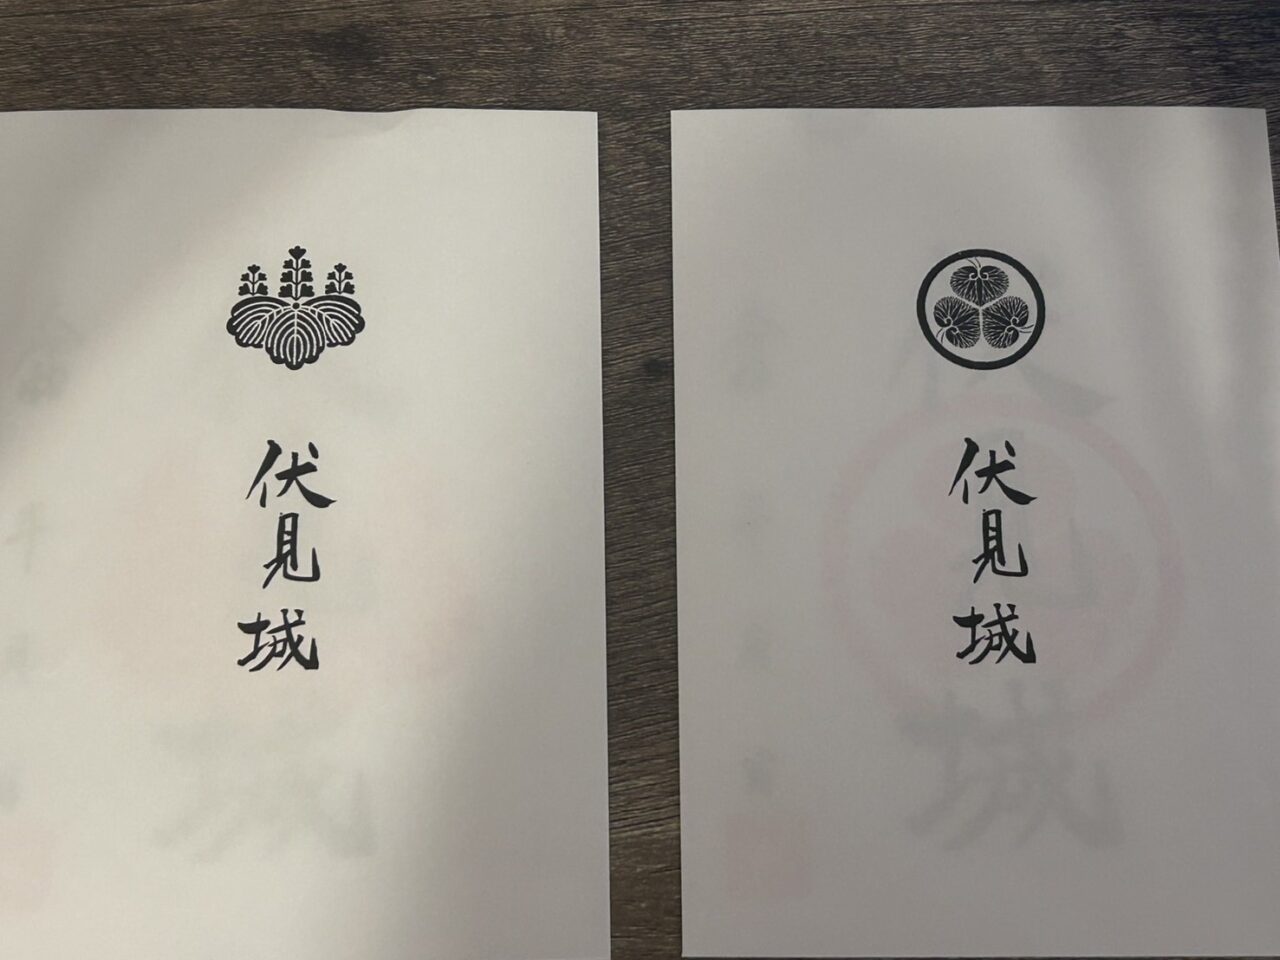 伏見城
伏見城
城